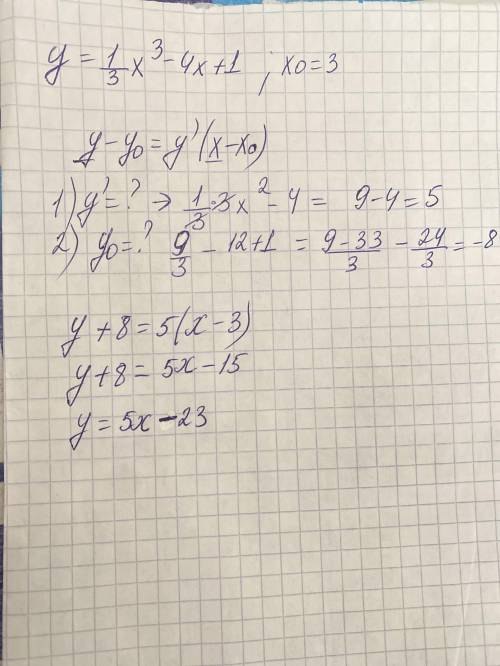 y = 1/3 x³ - 4x + 1 ; x0 = 3
y - y₀ = y' (x - x₀)
1) y' = ? → 1/3 · 3x² - 4 = 9 - 4 = 5
2) y₀ = ? 9/3 - 12 + 1 = (9 - 33)/3 - 24/3 = -8
y + 8 = 5(x - 3)
y + 8 = 5x - 15
y = 5x - 23